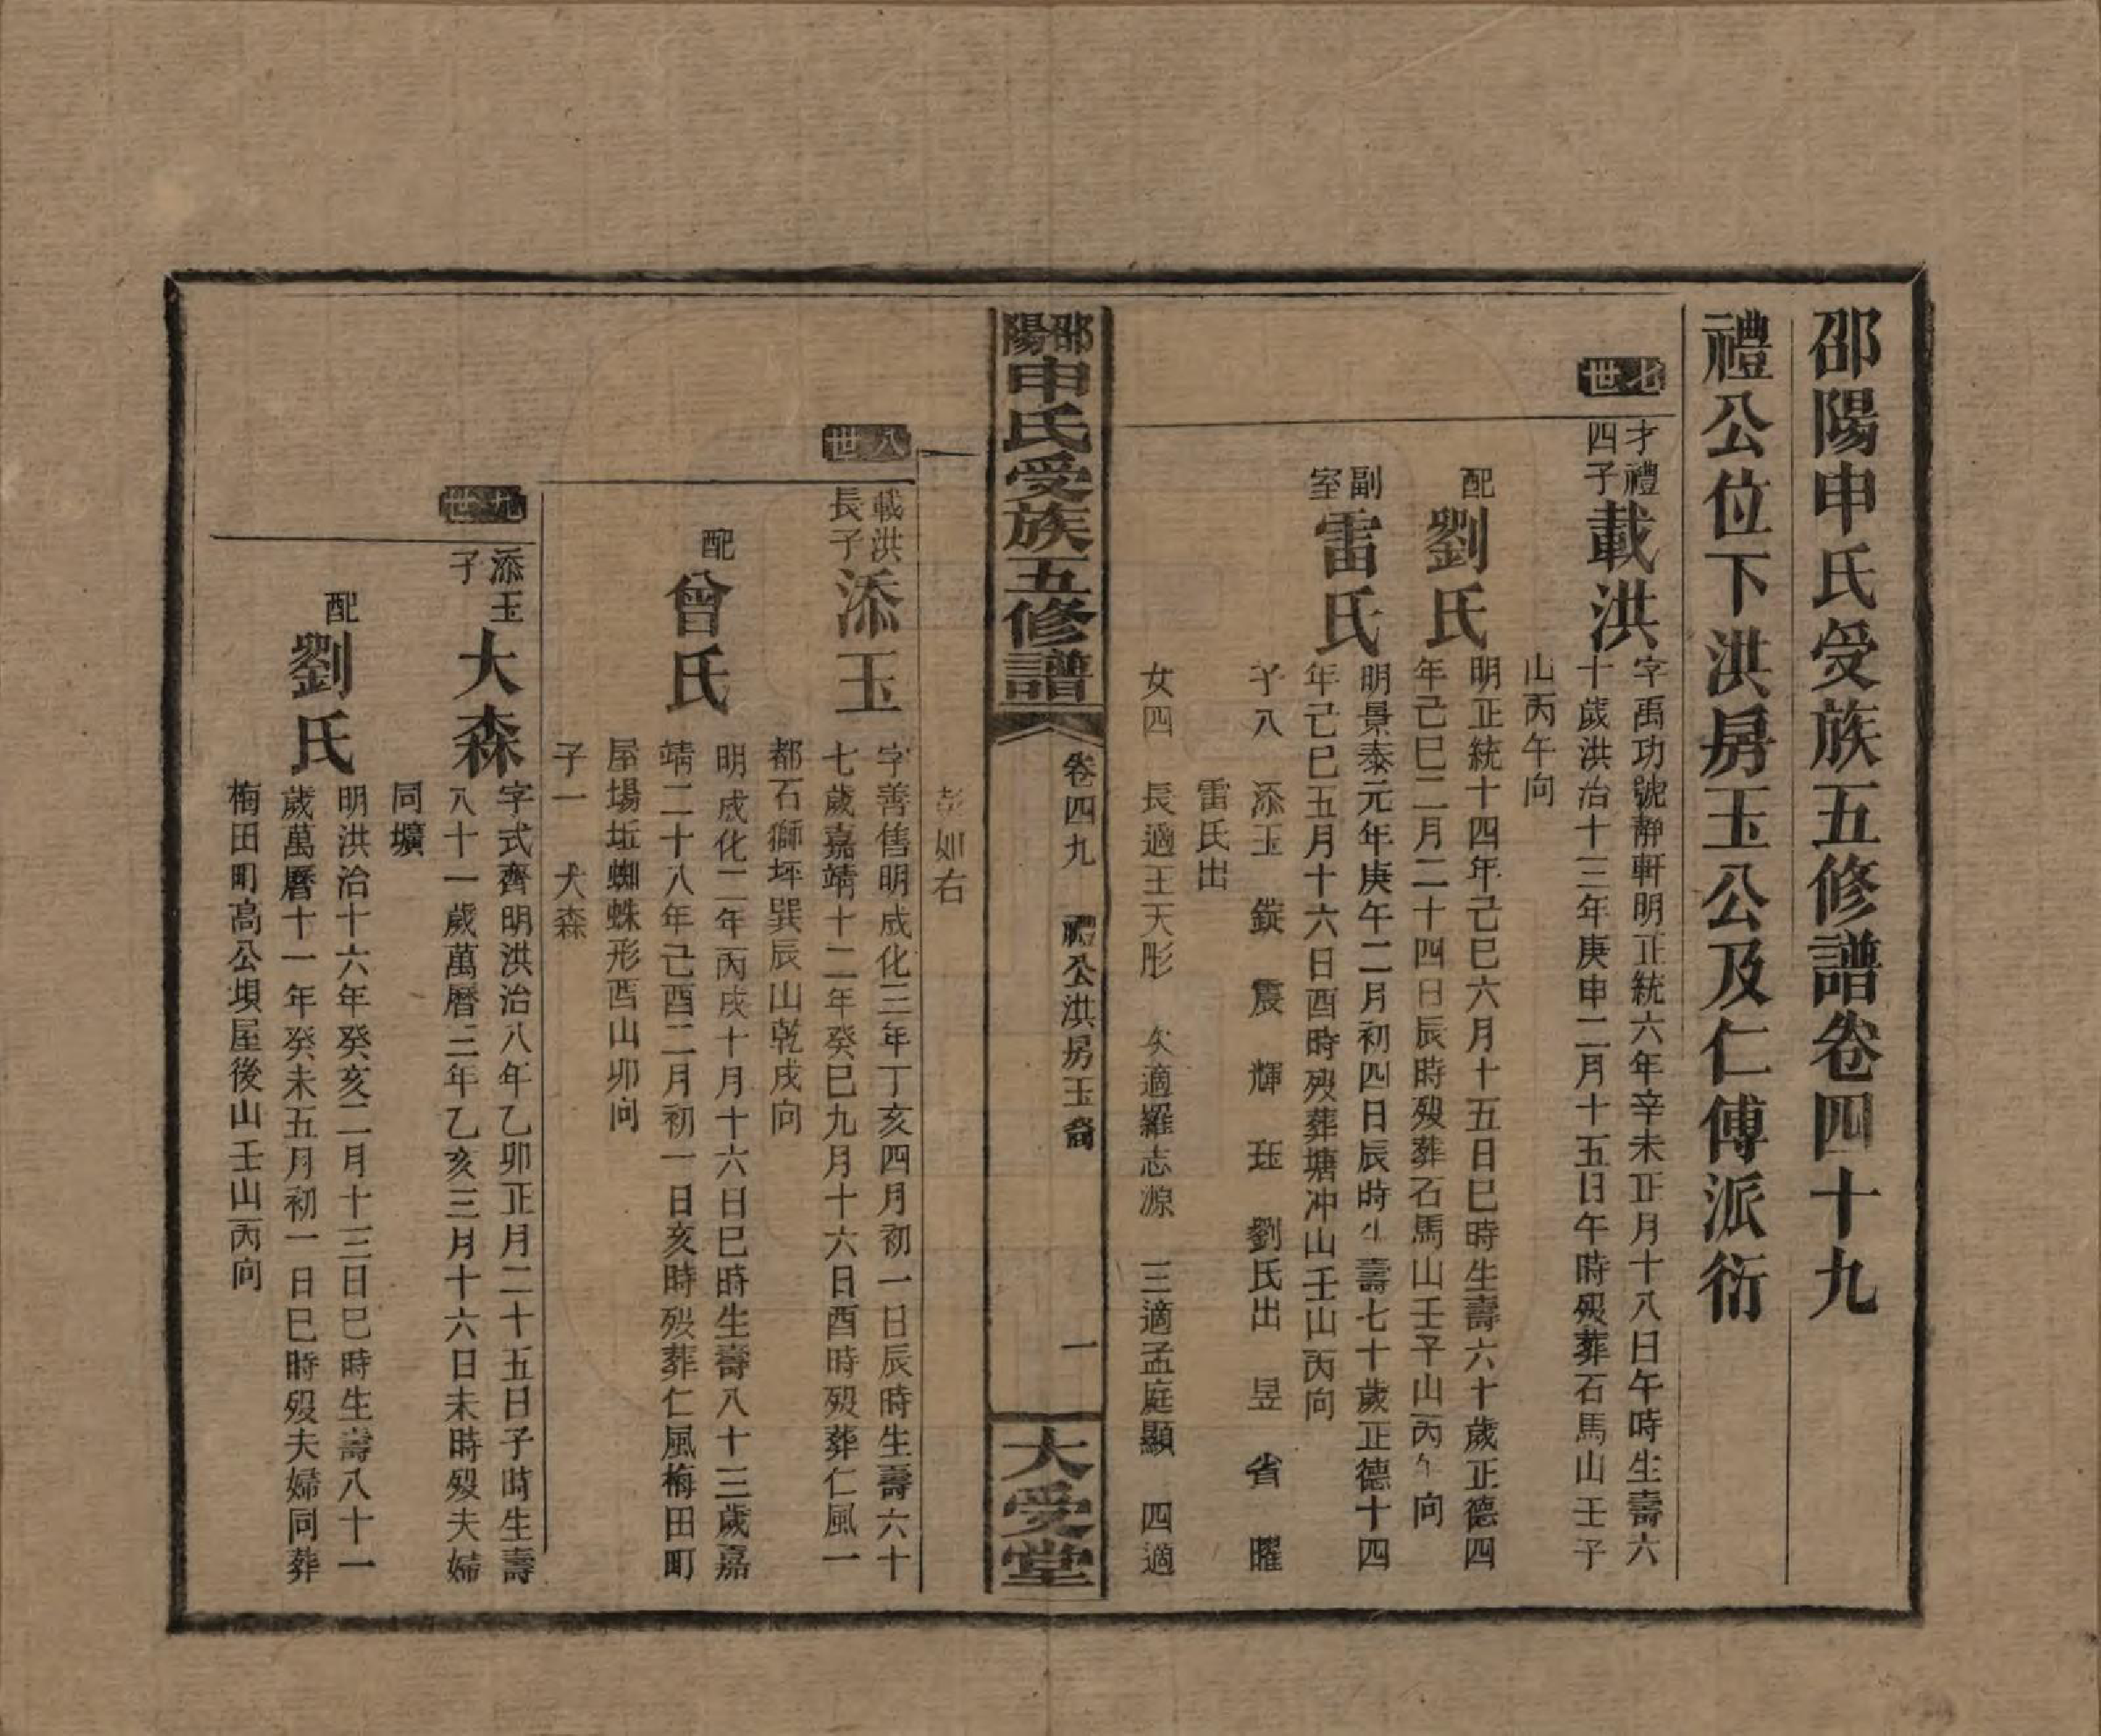 邵陽申氏受族五修譜卷四十九
禮公位下洪房玉公及仁傅派衍
七世
才禮四子
載洪
字禹功號靜軒明正統六年辛未正月十八日午時生壽六
十歲洪治十三年庚申二月十五日午時歿葬石馬山壬子
山丙午向
配劉氏
明正統十四年己巳六月十五日巳時生壽六十歲正德四
年己巳二月二十四日辰時歿葬石馬山壬子山丙午向
副室雷氏
明景泰元年庚午二月初四日辰時生壽七十歲正德十四
年己巳五月十六日酉時歿葬塘冲山壬山丙向
子八 添玉 鏦 震 輝 珏 劉氏出 昱 省 曜
雷氏出
女四 長適王天彤 次適羅志源 三適孟庭顯 四適
邵陽申氏受族五修譜
卷四九 禮公洪房玉裔
一
大受堂
彭如右
八世
載洪長子
添玉
字善售明成化三年丁亥四月初一日辰時生壽六十
七歲嘉靖十二年癸巳九月十六日酉時歿葬仁風一
都石獅坪巽辰山乾戌向
配曾氏
明成化二年丙戌十月十六日巳時生壽八十三歲嘉
靖二十八年己酉二月初一日亥時歿葬仁風梅田町
屋場坵蜘蛛形酉山卯向
子一 大森
九世
添玉子
大森
字式齊明洪治八年乙卯正月二十五日子時生壽
八十一歲萬曆三年乙亥三月十六日未時歿夫婦
同壙
配劉氏
明洪治十六年癸亥二月十三日巳時生壽八十一
歲萬曆十一年癸未五月初一日巳時歿夫婦同葬
梅田町高公垻屋後山壬山丙向